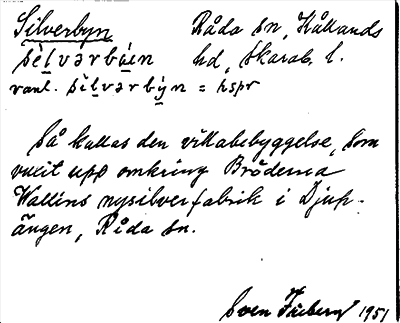 Silverbyn Råda sn, Kållands
sìlvərbẁen hd, Skarab. l.
vanl. sìlvərbẏn = rspr
Så kallas den villabebyggelse, som
vuxit upp omkring Bröderna
Wallins nysilverfabrik i Djup-
ängen, Råda sn.
Sven Färberg 1951